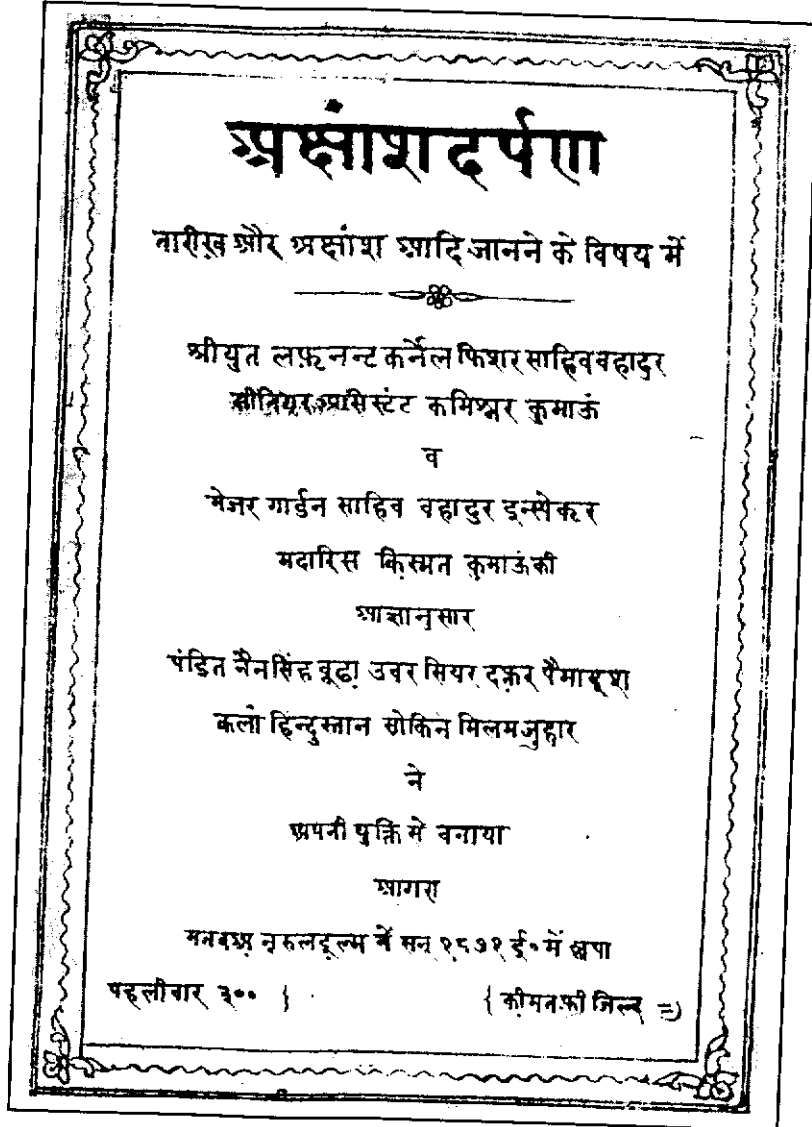 अक्षांशदर्पण
तारीख़ और अक्षांश आदि जानने के विषय में
श्रीयुत लफ़्टनन्ट कर्नेल फिशर साहिब वहादुर
सीनियर आसिस्टंट कमिश्नर कुमाऊं
व
मेजर गार्डन साहिव वहादुर इन्स्पेक्टर
मदारिस क़िस्मत कुमाऊंकी
आज्ञानुसार
पंडित नैनसिंह वूढा़ उवर सियर दफ़्तर पैमायश
कलां हिन्दुस्तान साकिन मिलम जुहार
ने
अपनी युक्ति से वनाया
आगरा
मतबअ नूरुलइल्म में सन् १८७१ ई० में छपा
पहलीवार ३०० }
{ क़ीमत फ़ी जिल्द =)